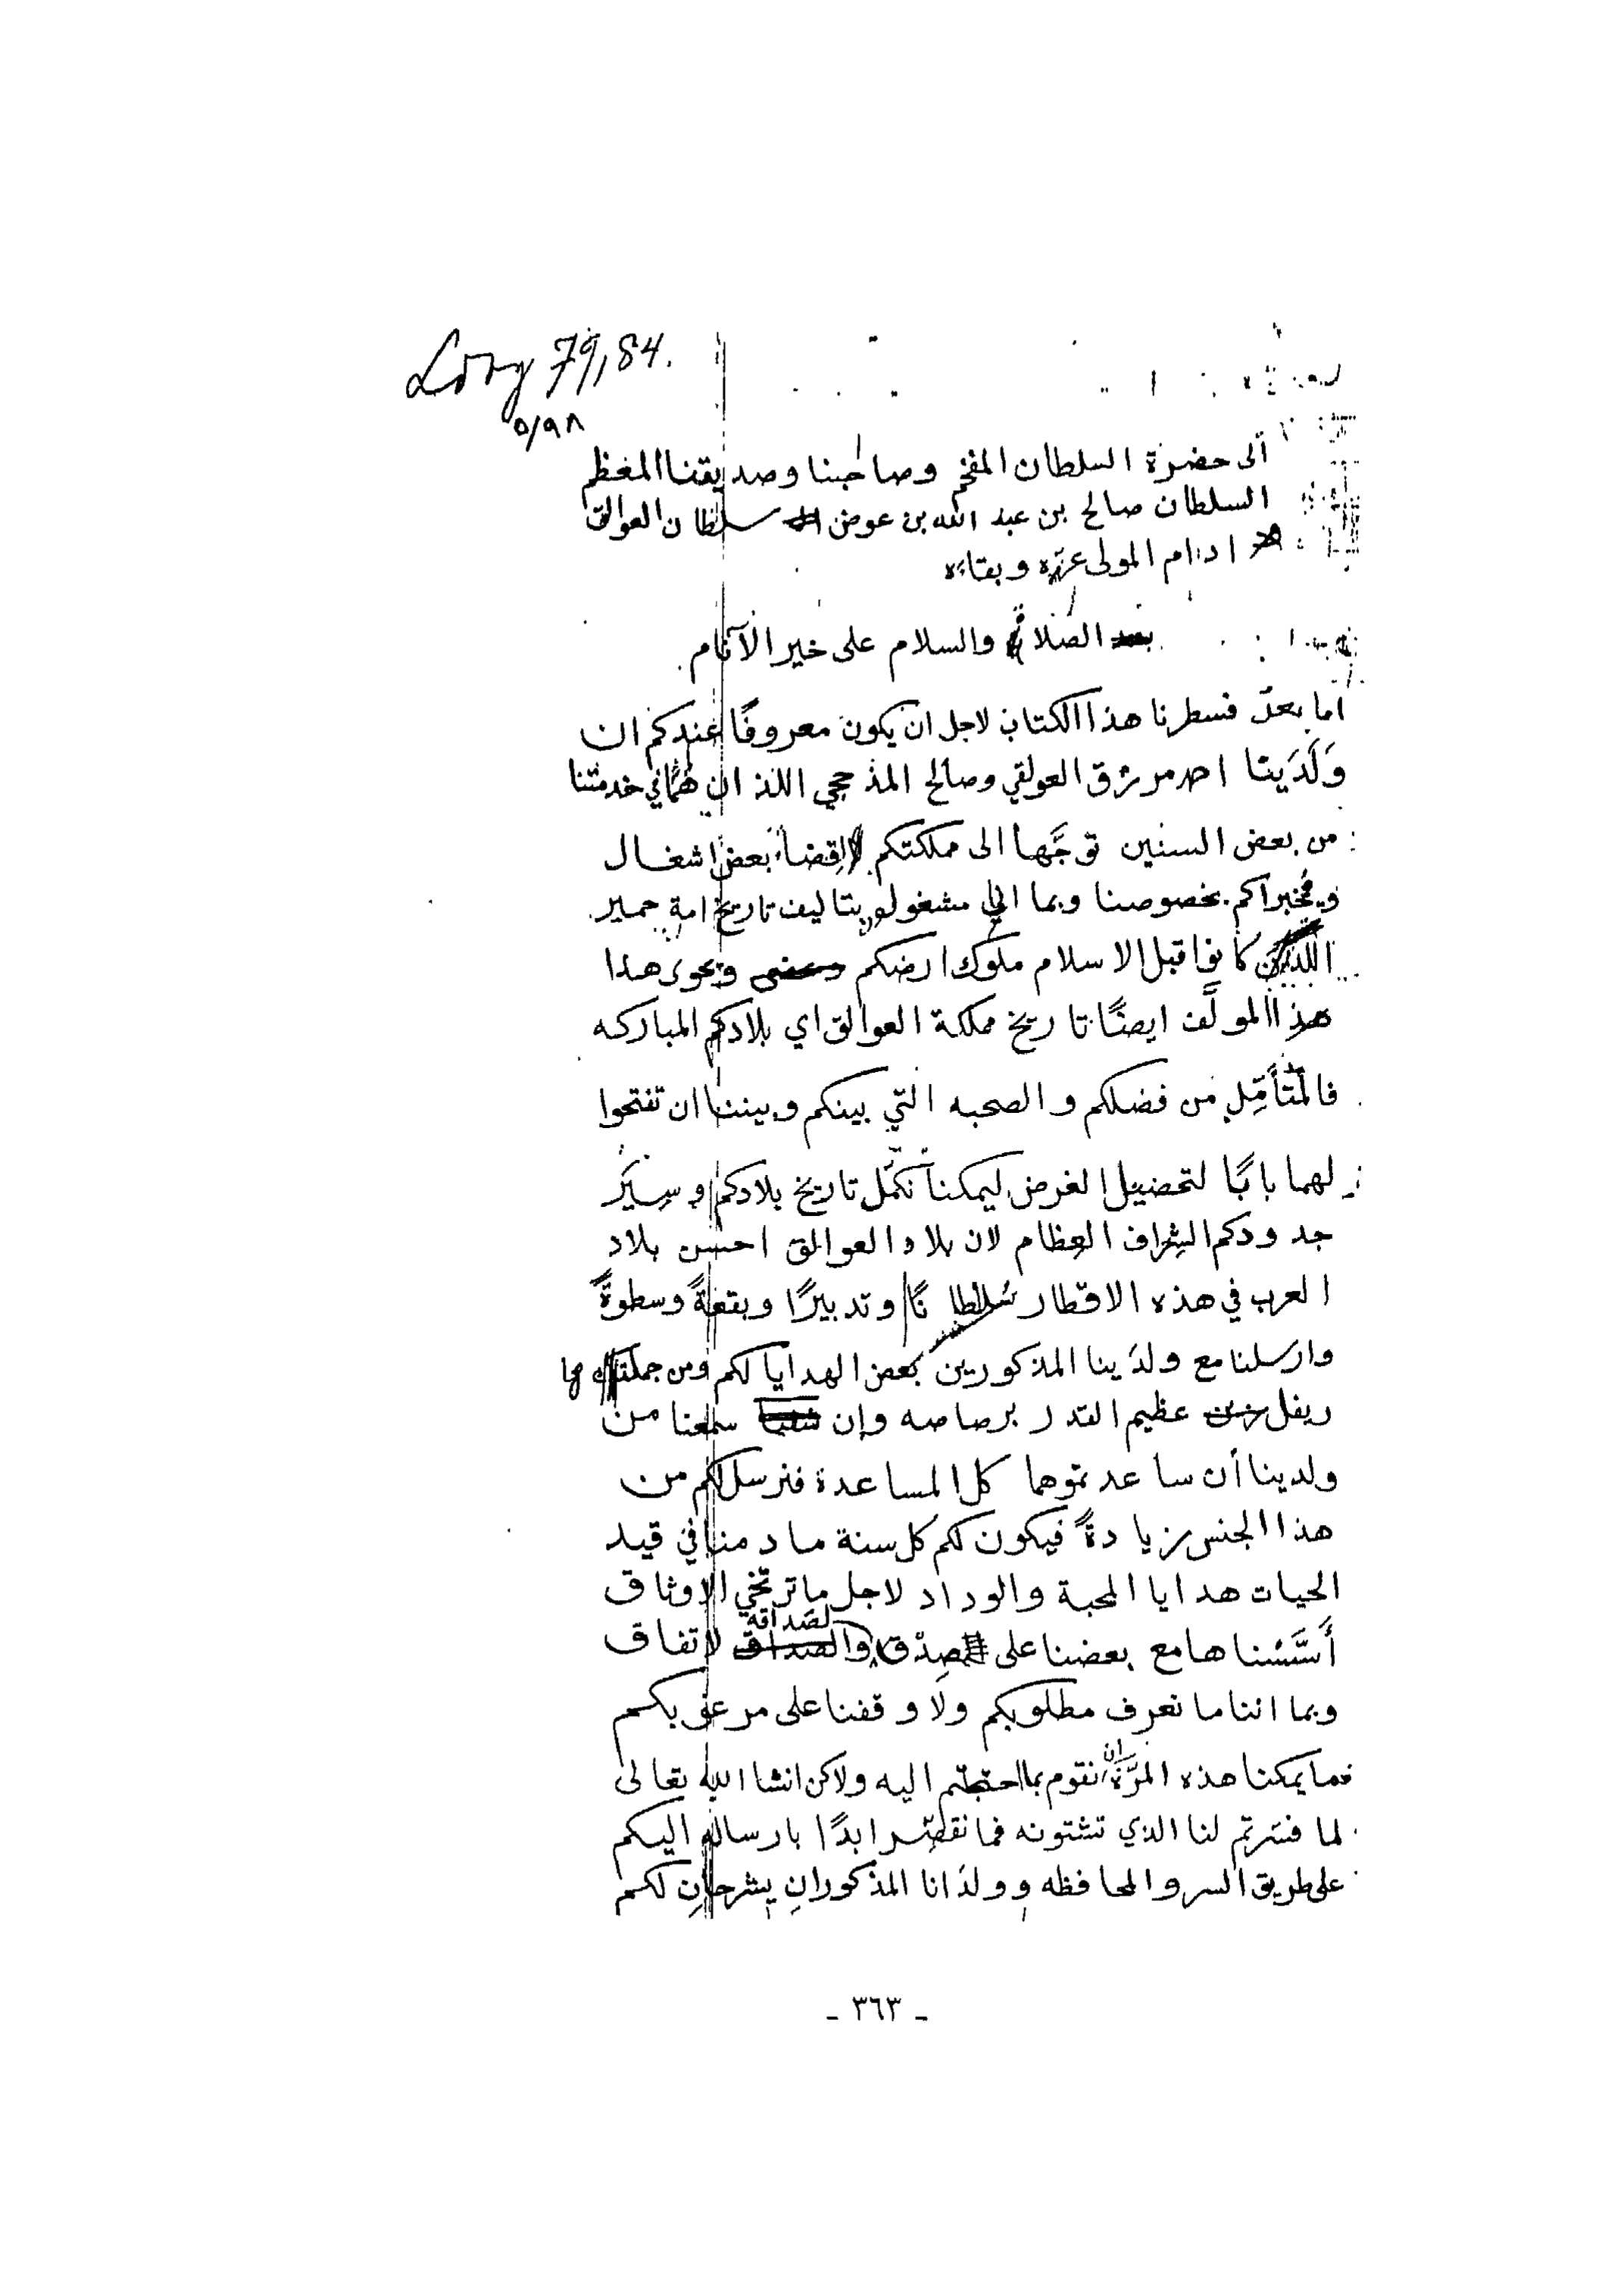 Lörg 79,84.
٥/٩٨
الى حضرة السلطان المفخم وصاحبنا وصديقنا المعظم
السلطان صالح بن عبد الله بن عوض سلطان العوالق
ادام المولى عزّه وبقاءه
بعد الصلاة والسلام على خير الآنام
اما بعد فسطرنا هذا الكتاب لاجل ان يكون معروفًا عندكم ان
وَلَدَينا احمد مرزق العولقي وصالح المذحجي اللذان هما في خدمتنا
من بعض السنين توجَّها الى مملكتكم لاقضاء بعض اشغال
ويخبراكم بخصوصنا وبما اني مشغول بتاليف تاريخ امة حمير
اللذين كانوا قبل الاسلام ملوك ارضكم ويحوى هذا
هذا المولَّف ايضًا تاريخ مملكة العوالق اي بلادكم المباركه
فالمُتأمِّل من فضلكم والصحبه التي بينكم وبيننا ان تفتحوا
لهما بابًا لتحضيل الغرض ليمكننا نكمّل تاريخ بلادكم وسِيَر
جدودكم الشراف العظام لان بلاد العوالق احسن بلاد
العرب في هذه الاقطار سُلطانًا وتدبيرًا وبقعةً وسطوةً
وارسلنا مع ولدَينا المذكورين بعض الهدايا لكم ومن جملتها
ريفل عظيم القدر برصاصه وإن سمعنا من
ولدينا أن ساعدتموهما كل المساعدة فنرسل لكم من
هذا الجنس زيادةً فيكون لكم كل سنة ما دمنا في قيد
الحيات هدايا المحبة والوداد لاجل ما ترتخي الاوثاق
لصداقه
أَسَّسْناها مع بعضنا على صِدْق والصداق لاتفاق
وبما اننا ما نعرف مطلوبكم ولا وقفنا على مرغوبكم
ان
فما يمكننا هذه المرّة نقوم بما احتجتم اليه ولاكن انشا الله تعالى
لما فسرتم لنا الذي تشتونه فما نقصّر ابدًا بارساله اليكم
على طريق السر والمحافظه وولدَانا المذكورانِ يشرحانِ لكم
- ٣٦٣ -